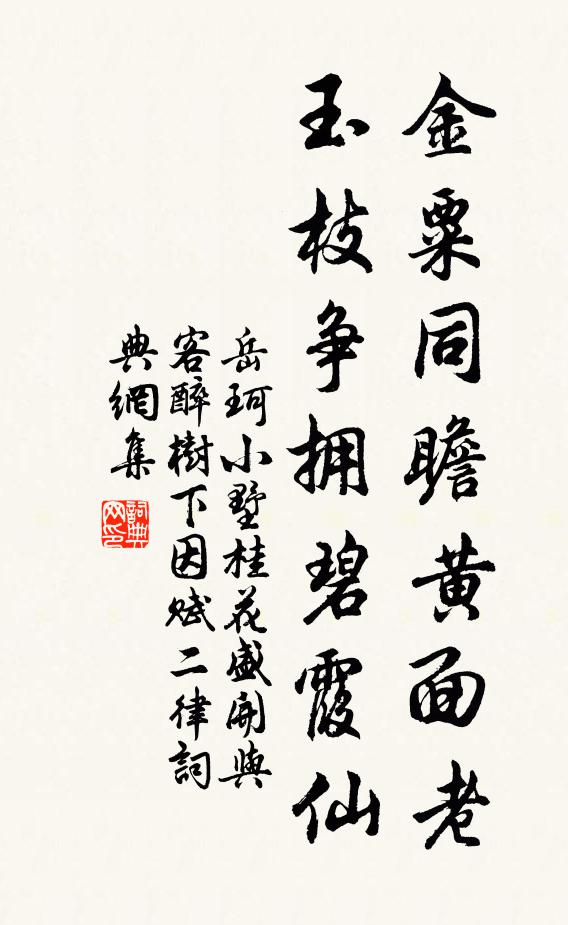 金粟同瞻黄面老
玉枝争拥碧霞仙
岳珂小墅桂花盛開與
客醉樹下因赋二律詞
典網集
詞典
网印